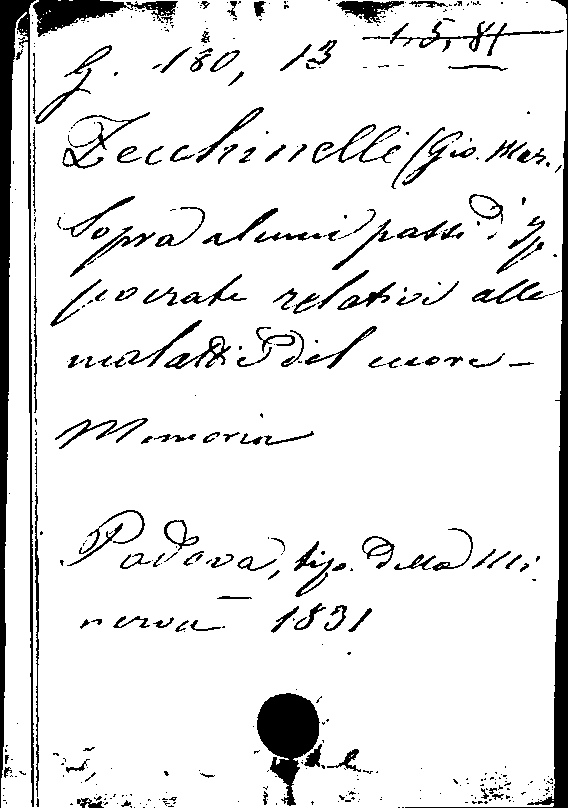 G. 180, 13 1, 5, 81
Zecchinelli (Gio. Mar.,
Sopra alcuni passi d'Ip
pocrate relativi alle
malattie del cuore –
Memoria
Padova, tip. della Mi
nerva 1831